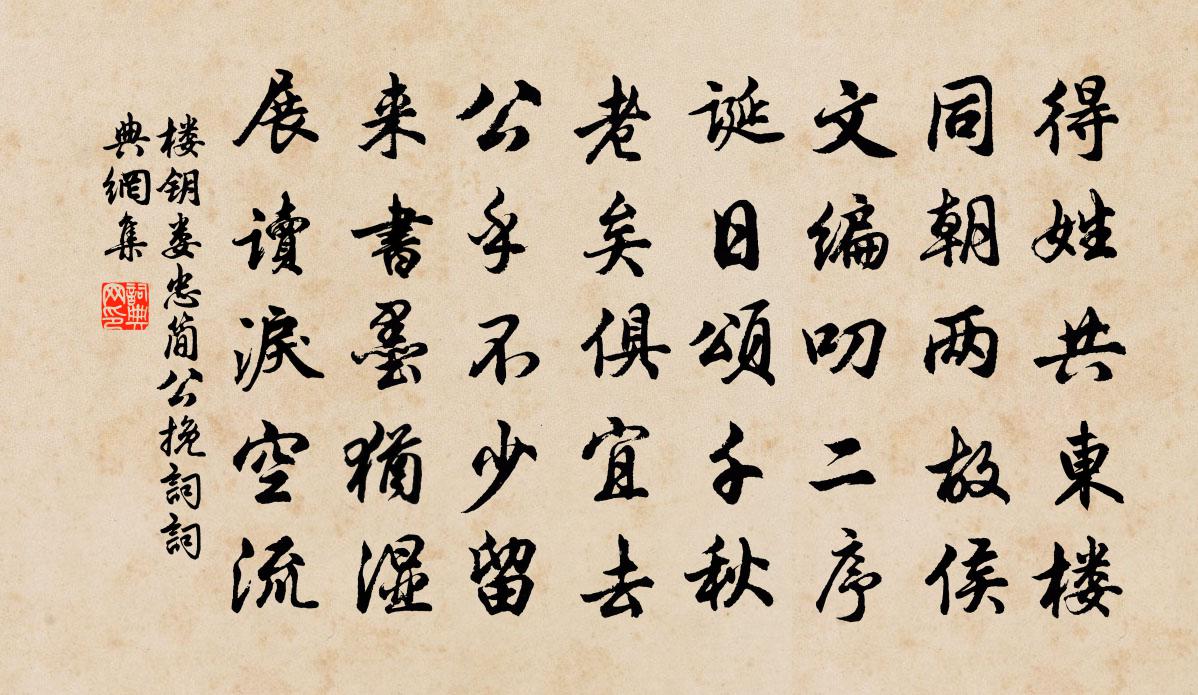 得姓共東楼
同朝两故侯
文编叨二序
诞日頌千秋
老矣俱宜去
公乎不少留
来書墨猶湿
展讀淚空流
楼钥娄忠简公挽詞詞
典網集
詞典
网印